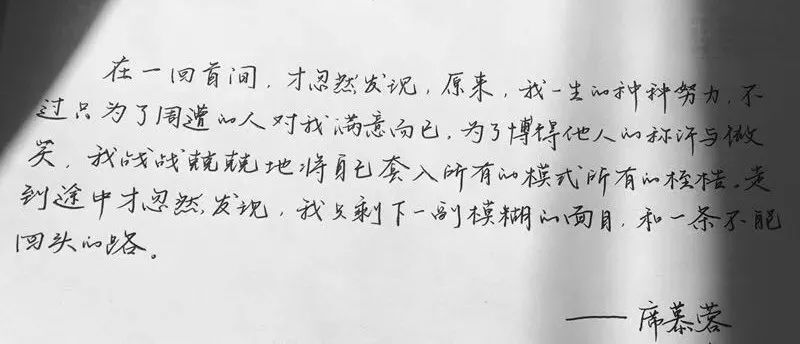 在一回首间，才忽然发现，原来，我一生的种种努力，不
过只为了周遭的人对我满意而已。为了博得他人的称许与微
笑，我战战兢兢地将自己套入所有的模式所有的桎梏。走
到途中才忽然发现，我只剩下一副模糊的面目，和一条不能
回头的路。
——席慕蓉